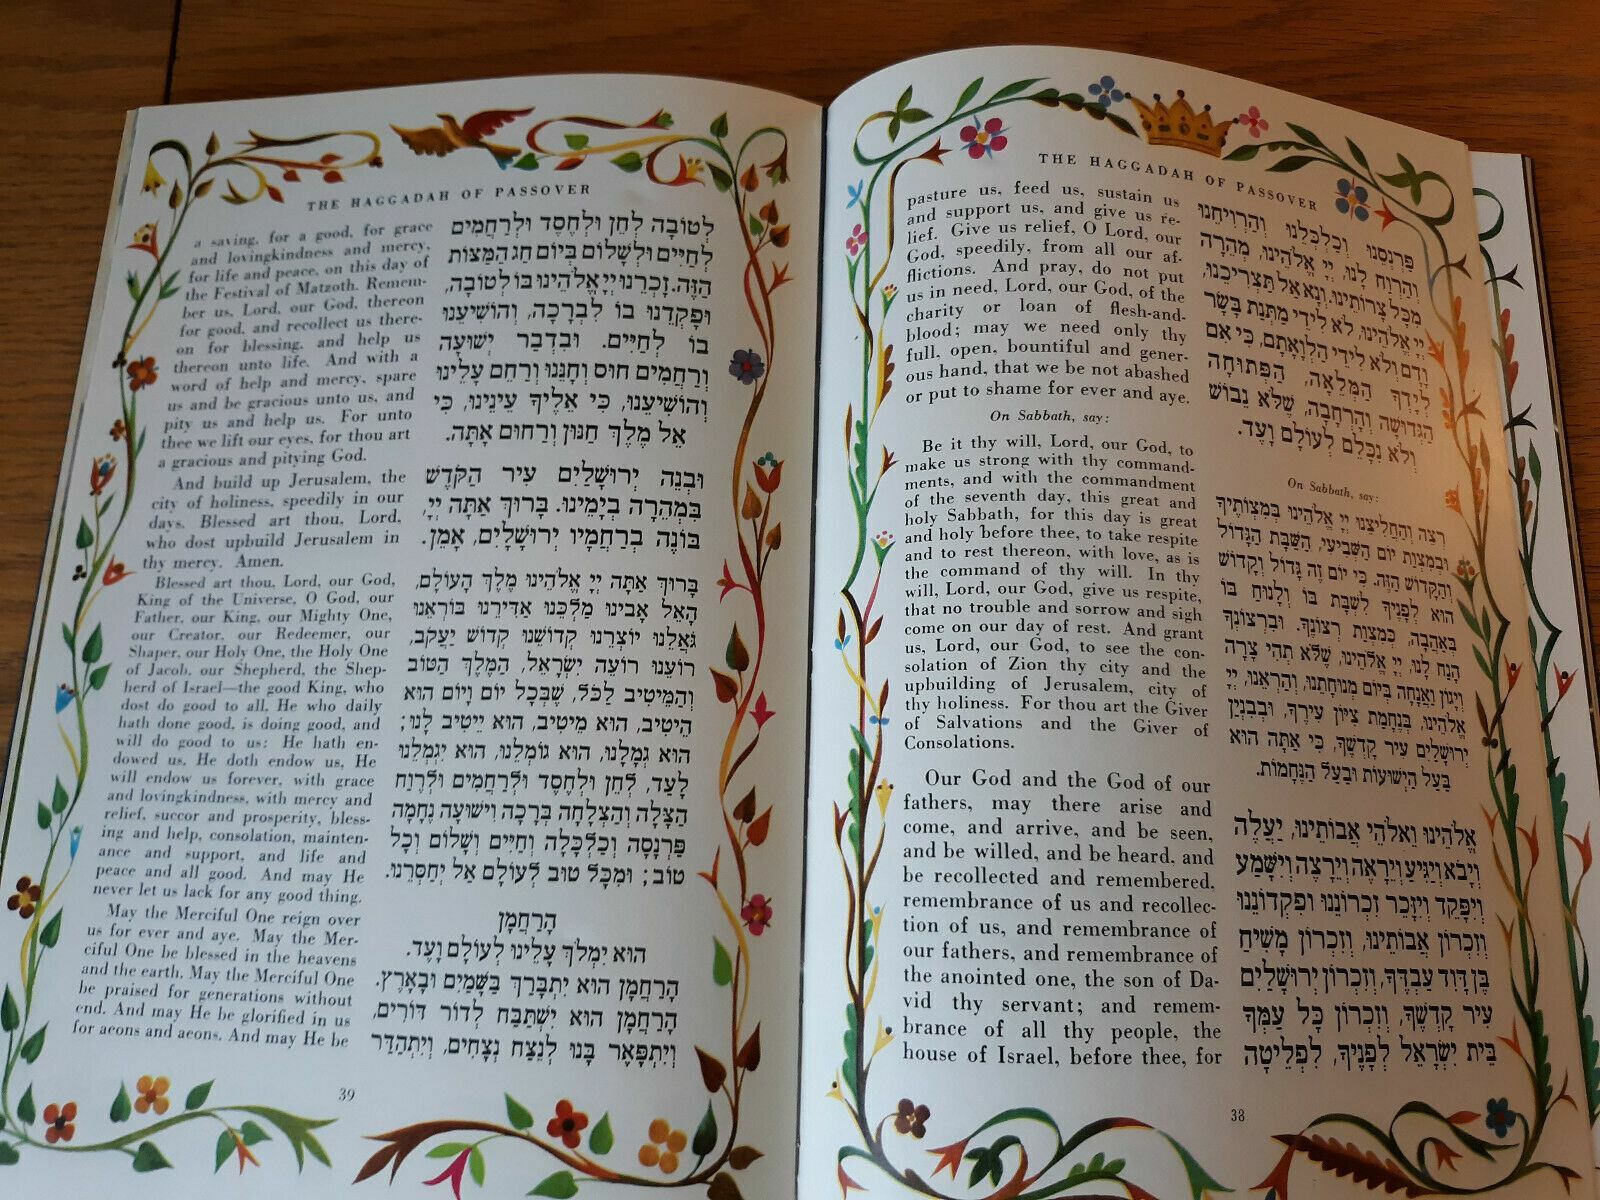 THE HAGGADAH OF PASSOVER
pasture us, feed us, sustain us
and support us, and give us re-
lief. Give us relief, O Lord, our
God, speedily, from all our af-
flictions. And pray, do not put
us in need, Lord, our God, of the
charity or loan of flesh-and-
blood; may we need only thy
full, open, bountiful and gener-
ous hand, that we be not abashed
or put to shame for ever and aye.
On Sabbath, say:
Be it thy will, Lord, our God, to
make us strong with thy command-
ments, and with the commandment
of the seventh day, this great and
holy Sabbath, for this day is great
and holy before thee, to take respite
and to rest thereon, with love, as is
the command of thy will. In thy
will, Lord, our God, give us respite,
that no trouble and sorrow and sigh
come on our day of rest. And grant
us, Lord, our God, to see the con-
solation of Zion thy city and the
upbuilding of Jerusalem, city of
thy holiness. For thou art the Giver
of Salvations and the Giver of
Consolations.
Our God and the God of our
fathers, may there arise and
come, and arrive, and be seen,
and be willed, and be heard, and
be recollected and remembered,
remembrance of us and recollec-
tion of us, and remembrance of
our fathers, and remembrance of
the anointed one, the son of Da-
vid thy servant; and remem-
brance of all thy people, the
house of Israel, before thee, for
פַּרְנְסֵנוּ וְכַלְכְּלֵנוּ וְהַרְוִיחֵנוּ
וְהַרְוַח לָנוּ, יְיָ אֱלֹהֵינוּ, מְהֵרָה
מִכָּל צָרוֹתֵינוּ. וְנָא אַל תַּצְרִיכֵנוּ,
יְיָ אֱלֹהֵינוּ, לֹא לִידֵי מַתְּנַת בָּשָׂר
וָדָם וְלֹא לִידֵי הַלְוָאָתָם, כִּי אִם
לְיָדְךָ הַמְּלֵאָה, הַפְּתוּחָה
הַגְּדוּשָׁה וְהָרְחָבָה, שֶׁלֹּא נֵבוֹשׁ
וְלֹא נִכָּלֵם לְעוֹלָם וָעֶד.
On Sabbath, say:
רְצֵה וְהַחֲלִיצֵנוּ יְיָ אֱלֹהֵינוּ בְּמִצְוֹתֶיךָ
וּבְמִצְוַת יוֹם הַשְּׁבִיעִי, הַשַּׁבָּת הַגָּדוֹל
וְהַקָּדוֹשׁ הַזֶּה. כִּי יוֹם זֶה גָּדוֹל וְקָדוֹשׁ
הוּא לְפָנֶיךָ לִשְׁבָּת בּוֹ וְלָנוּחַ בּוֹ
בְּאַהֲבָה, כְּמִצְוַת רְצוֹנֶךָ. וּבִרְצוֹנְךָ
הָנַח לָנוּ, יְיָ אֱלֹהֵינוּ, שֶׁלֹּא תְהִי צָרָה
וְיָגוֹן וַאֲנָחָה בְּיוֹם מְנוּחָתֵנוּ, וְהַרְאֵנוּ, יְיָ
אֱלֹהֵינוּ, בְּנֶחָמַת צִיּוֹן עִירֶךָ, וּבְבִנְיַן
יְרוּשָׁלַיִם עִיר קָדְשֶׁךָ, כִּי אַתָּה הוּא
בַּעַל הַיְשׁוּעוֹת וּבַעַל הַנֶּחָמוֹת.
אֱלֹהֵינוּ וֵאלֹהֵי אֲבוֹתֵינוּ, יַעֲלֶה
וְיָבֹא וְיַגִּיעַ וְיֵרָאֶה וְיֵרָצֶה וְיִשָּׁמַע
וְיִפָּקֵד וְיִזָּכֵר זִכְרוֹנֵנוּ וּפִקְדוֹנֵנוּ
וְזִכְרוֹן אֲבוֹתֵינוּ, וְזִכְרוֹן מָשִׁיחַ
בֶּן דָּוִד עַבְדֶּךָ, וְזִכְרוֹן יְרוּשָׁלַיִם
עִיר קָדְשֶׁךָ, וְזִכְרוֹן כָּל עַמְּךָ
בֵּית יִשְׂרָאֵל לְפָנֶיךָ, לִפְלֵיטָה
38
THE HAGGADAH OF PASSOVER
a saving, for a good, for grace
and lovingkindness and mercy,
for life and peace, on this day of
the Festival of Matzoth. Remem-
ber us, Lord, our God, thereon
for good, and recollect us there-
on for blessing, and help us
thereon unto life. And with a
word of help and mercy, spare
us and be gracious unto us, and
pity us and help us. For unto
thee we lift our eyes, for thou art
a gracious and pitying God.
And build up Jerusalem, the
city of holiness, speedily in our
days. Blessed art thou, Lord,
who dost upbuild Jerusalem in
thy mercy. Amen.
Blessed art thou, Lord, our God,
King of the Universe, O God, our
Father, our King, our Mighty One,
our Creator, our Redeemer, our
Shaper, our Holy One, the Holy One
of Jacob, our Shepherd, the Shep-
herd of Israel—the good King, who
dost do good to all. He who daily
hath done good, is doing good, and
will do good to us: He hath en-
dowed us, He doth endow us, He
will endow us forever, with grace
and lovingkindness, with mercy and
relief, succor and prosperity, bless-
ing and help, consolation, mainten-
ance and support, and life and
peace and all good. And may He
never let us lack for any good thing.
May the Merciful One reign over
us for ever and aye. May the Mer-
ciful One be blessed in the heavens
and the earth. May the Merciful One
be praised for generations without
end. And may He be glorified in us
for aeons and aeons. And may He be
לְטוֹבָה לְחֵן וּלְחֶסֶד וּלְרַחֲמִים
לְחַיִּים וּלְשָׁלוֹם בְּיוֹם חַג הַמַּצּוֹת
הַזֶּה. זָכְרֵנוּ יְיָ אֱלֹהֵינוּ בּוֹ לְטוֹבָה,
וּפָקְדֵנוּ בוֹ לִבְרָכָה, וְהוֹשִׁיעֵנוּ
בוֹ לְחַיִּים. וּבִדְבַר יְשׁוּעָה
וְרַחֲמִים חוּס וְחָנֵּנוּ וְרַחֵם עָלֵינוּ
וְהוֹשִׁיעֵנוּ, כִּי אֵלֶיךָ עֵינֵינוּ, כִּי
אֵל מֶלֶךְ חַנּוּן וְרַחוּם אָתָּה.
וּבְנֵה יְרוּשָׁלַיִם עִיר הַקֹּדֶשׁ
בִּמְהֵרָה בְיָמֵינוּ. בָּרוּךְ אַתָּה יְיָ,
בּוֹנֵה בְרַחֲמָיו יְרוּשָׁלָיִם, אָמֵן.
בָּרוּךְ אַתָּה יְיָ אֱלֹהֵינוּ מֶלֶךְ הָעוֹלָם,
הָאֵל אָבִינוּ מַלְכֵּנוּ אַדִּירֵנוּ בּוֹרְאֵנוּ
גֹּאֲלֵנוּ יוֹצְרֵנוּ קְדוֹשֵׁנוּ קְדוֹשׁ יַעֲקֹב,
רוֹעֵנוּ רוֹעֵה יִשְׂרָאֵל, הַמֶּלֶךְ הַטּוֹב
וְהַמֵּיטִיב לַכֹּל, שֶׁבְּכָל יוֹם וָיוֹם הוּא
הֵיטִיב, הוּא מֵיטִיב, הוּא יֵיטִיב לָנוּ;
הוּא גְמָלָנוּ, הוּא גוֹמְלֵנוּ, הוּא יִגְמְלֵנוּ
לָעַד, לְחֵן וּלְחֶסֶד וּלְרַחֲמִים וּלְרֶוַח
הַצָּלָה וְהַצְלָחָה בְּרָכָה וִישׁוּעָה נֶחָמָה
פַּרְנָסָה וְכַלְכָּלָה וְחַיִּים וְשָׁלוֹם וְכָל
טוֹב; וּמִכָּל טוּב לְעוֹלָם אַל יְחַסְּרֵנוּ.
הָרַחֲמָן
הוּא יִמְלֹךְ עָלֵינוּ לְעוֹלָם וָעֶד.
הָרַחֲמָן הוּא יִתְבָּרַךְ בַּשָּׁמַיִם וּבָאָרֶץ.
הָרַחֲמָן הוּא יִשְׁתַּבַּח לְדוֹר דּוֹרִים,
וְיִתְפָּאֵר בָּנוּ לְנֵצַח נְצָחִים, וְיִתְהַדַּר
39